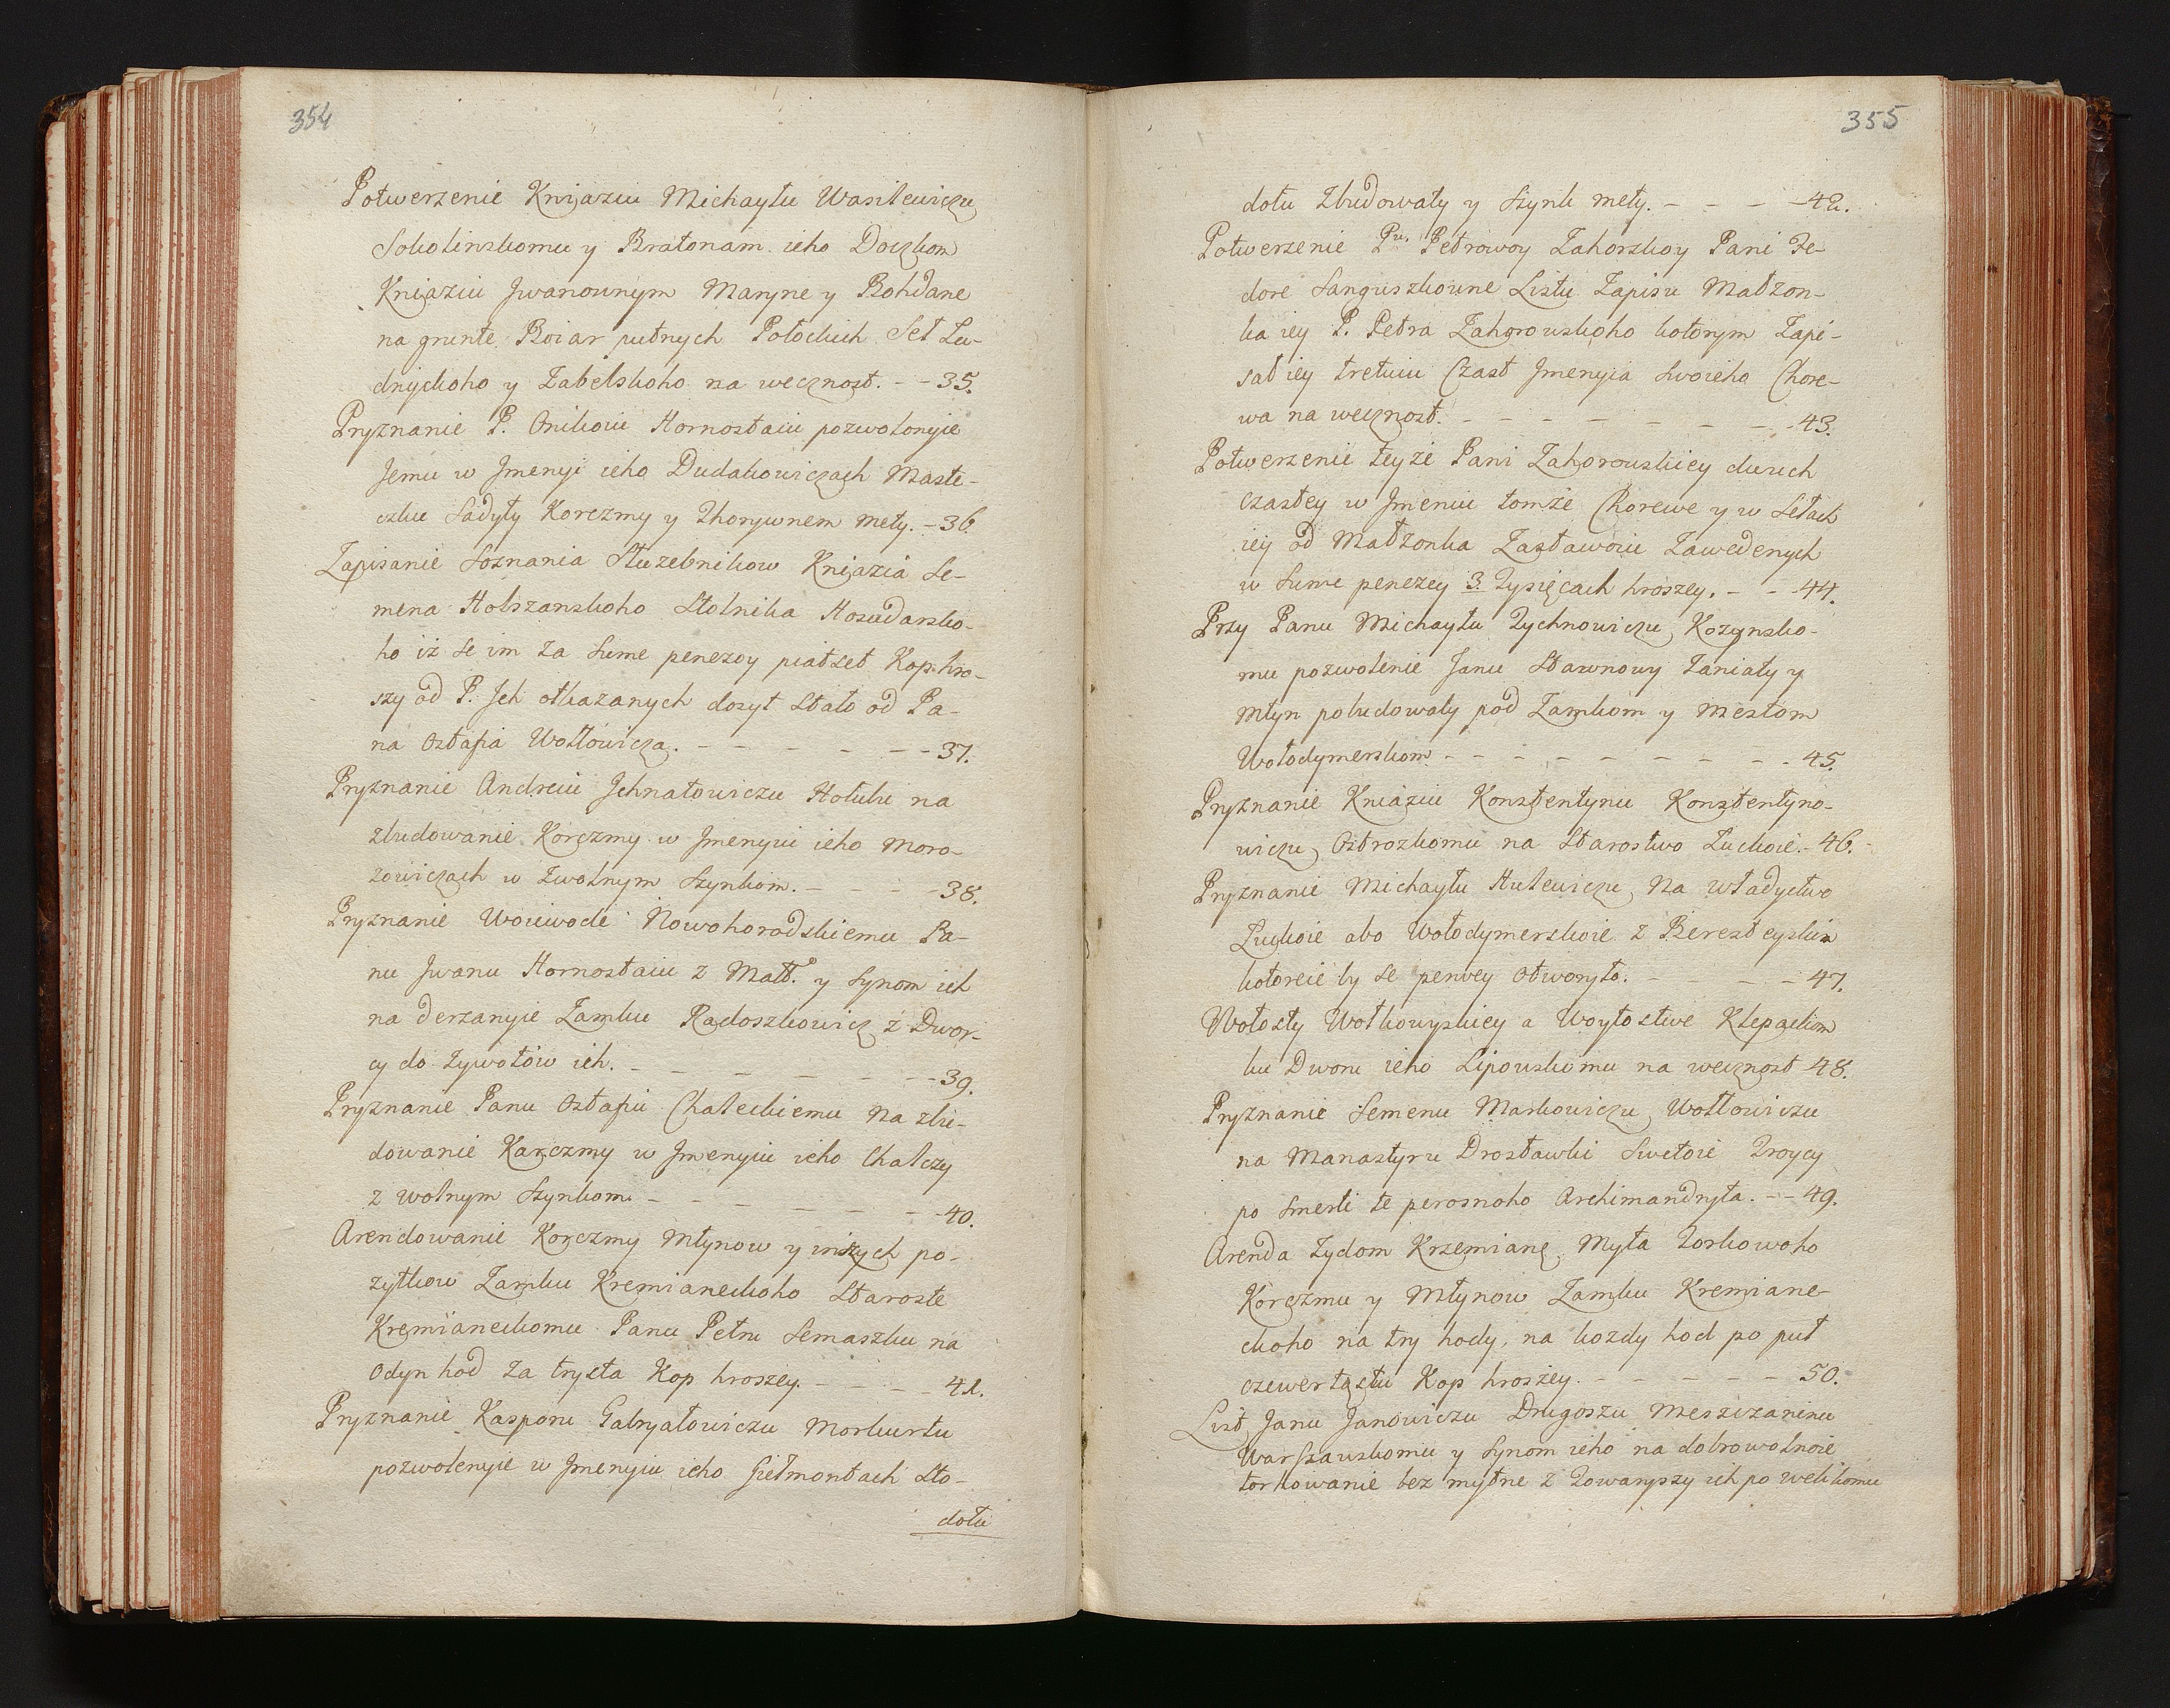 354
Potwerzenie Kniaziu Michayłu Wasilewiczu
Sokolinskomu y Bratonam ieho Doczkom
Kniaziu Jwanownym Maryne y Bohdane
na grunte Boiar putnych Połockich Set Lu-
dnyckoho y Zabelskoho na wecznost. - - 35.
Pryznanie P. Onikoiu Hornostaiu pozwolonyie
Jemu w Jmenyi ieho Dudakowiczach Maste-
czku Sadyty Korczmy y Thorywnem mety. - 36.
Zapisanie Soznania Służebnikow Kniazia Se-
mena Holszanskoho Stolnika Hosudarsko-
ho iż se im za Sume penezoy piatset Kop hro-
szy od P. Jch otkazanych dosyt Stało od Pa-
na Ostafia Wołłowicza. - - - - - - - 37.
Pryznanie Andreiu Jehnatowiczu Hołubu na
zbudowanie Korczmy w Jmenyiu ieho Moro-
zowiczach w Zwolnym Szynkom. - - - - 38.
Pryznanie Woiewode Nowohorodskiemu Pa-
nu Jwanu Hornostaiu z Małł.ᵒ y Synom ich
na derzanyie Zamku Radoszkowicz z Dwor-
cy do Zywotów ich. - - - - - - - 39.
Pryznanie Panu Ostafiu Chaleckiemu na zbu-
dowanie Karczmy w Jmenyiu ieho Chalczy
z wolnym Szynkom. - - - - - - - 40.
Arendowanie Korczmy Młynow y inszych po-
zytkow Zamku Kremianeckoho Staroste
Kremianeckomu Panu Petru Semaszku na
Odyn hod za trysta Kop hroszey. - - - - 41.
Pryznanie Kasporu Gabryałowiczu Morkurtu
pozwolenyie w Jmenyiu ieho Giełmontach Sto-
dołu
355
dołu Zbudowaty y Szynk mety. - - - - 42.
Potwerzenie Pu. Petrowoy Zahorskoy Pani Fe-
dore Sanguszkowne Listu Zapisu Małzon-
ka iey P. Petra Zahorowskoho kotorym Zapi-
sał iey tretuiu Czast Jmenyia Swoieho Chore-
wa na wecznost. - - - - - - - - 43.
Potwerzenie teyże Pani Zahorowskiey dwuch
czastey w Jmeniu tomże Chorewe y w Sełach
iey od Małzonka Zastawoiu Zawedenych
w Sume penezey 3. Tysięcach hroszey. - - 44.
Przy Panu Michayłu Tychnowiczu Kozynsko-
mu pozwolenie Janu Stawnowy Zaniaty y
Młyn pobudowaty pod Zamkom y Mestom
Wołodymerskom - - - - - - - - - 45.
Pryznanie Kniaziu Konstentynu Konstentyno-
wiczu Ostrozkomu na Starostwo Łuckoie. - 46.
Pryznanie Michayłu Hulewiczu na władyctwo
Łuckoie abo Wołodymerskoie z Beresteyskim
kotoreie by se perwey Otworyło. - - - - 47.
Wołosty Wołkowyskiey a Woytostwe Klepackom
ku Dworu ieho Lipowskomu na wecznost 48.
Pryznanie Semenu Markowiczu Wołłowiczu
na Manastyru Drosławki Swetoie Troycy
po Smerti te perosnoho Archimandryta. - - 49.
Arenda Zydom Krzemianę. Myta Torkowoho
Korczmu y Młynow Zamku Kremiane-
ckoho na try hody, na kozdy hod po puł
czewertastu Kop hroszey. - - - - - - 50.
List Janu Janowiczu Drugoszu Mesziczaninu
Warszawskomu y Synom ieho na dobrowolnoie
torhowanie bez mytne z Towaryszy ich po welikomu